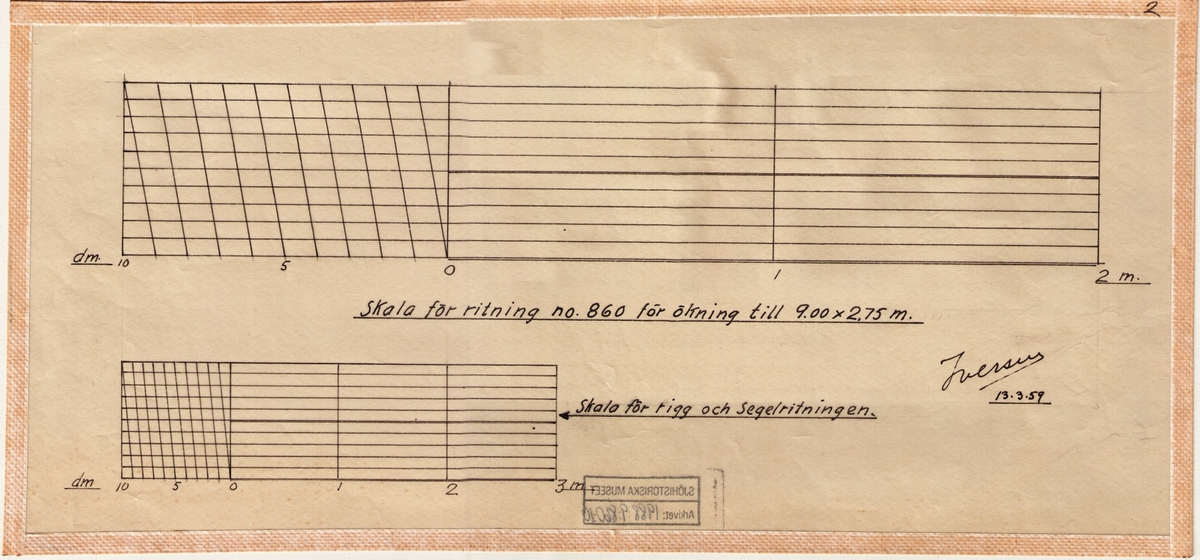 2
dm. 10 5 0 1 2 m.
Skala för ritning no. 860 för ökning till 9.00 x 2,75 m.
Iversen
13.3.59
Skala för rigg och Segelritningen.
dm 10 5 0 1 2 3 m
SJÖHISTORISKA MUSEET
Arkivet: